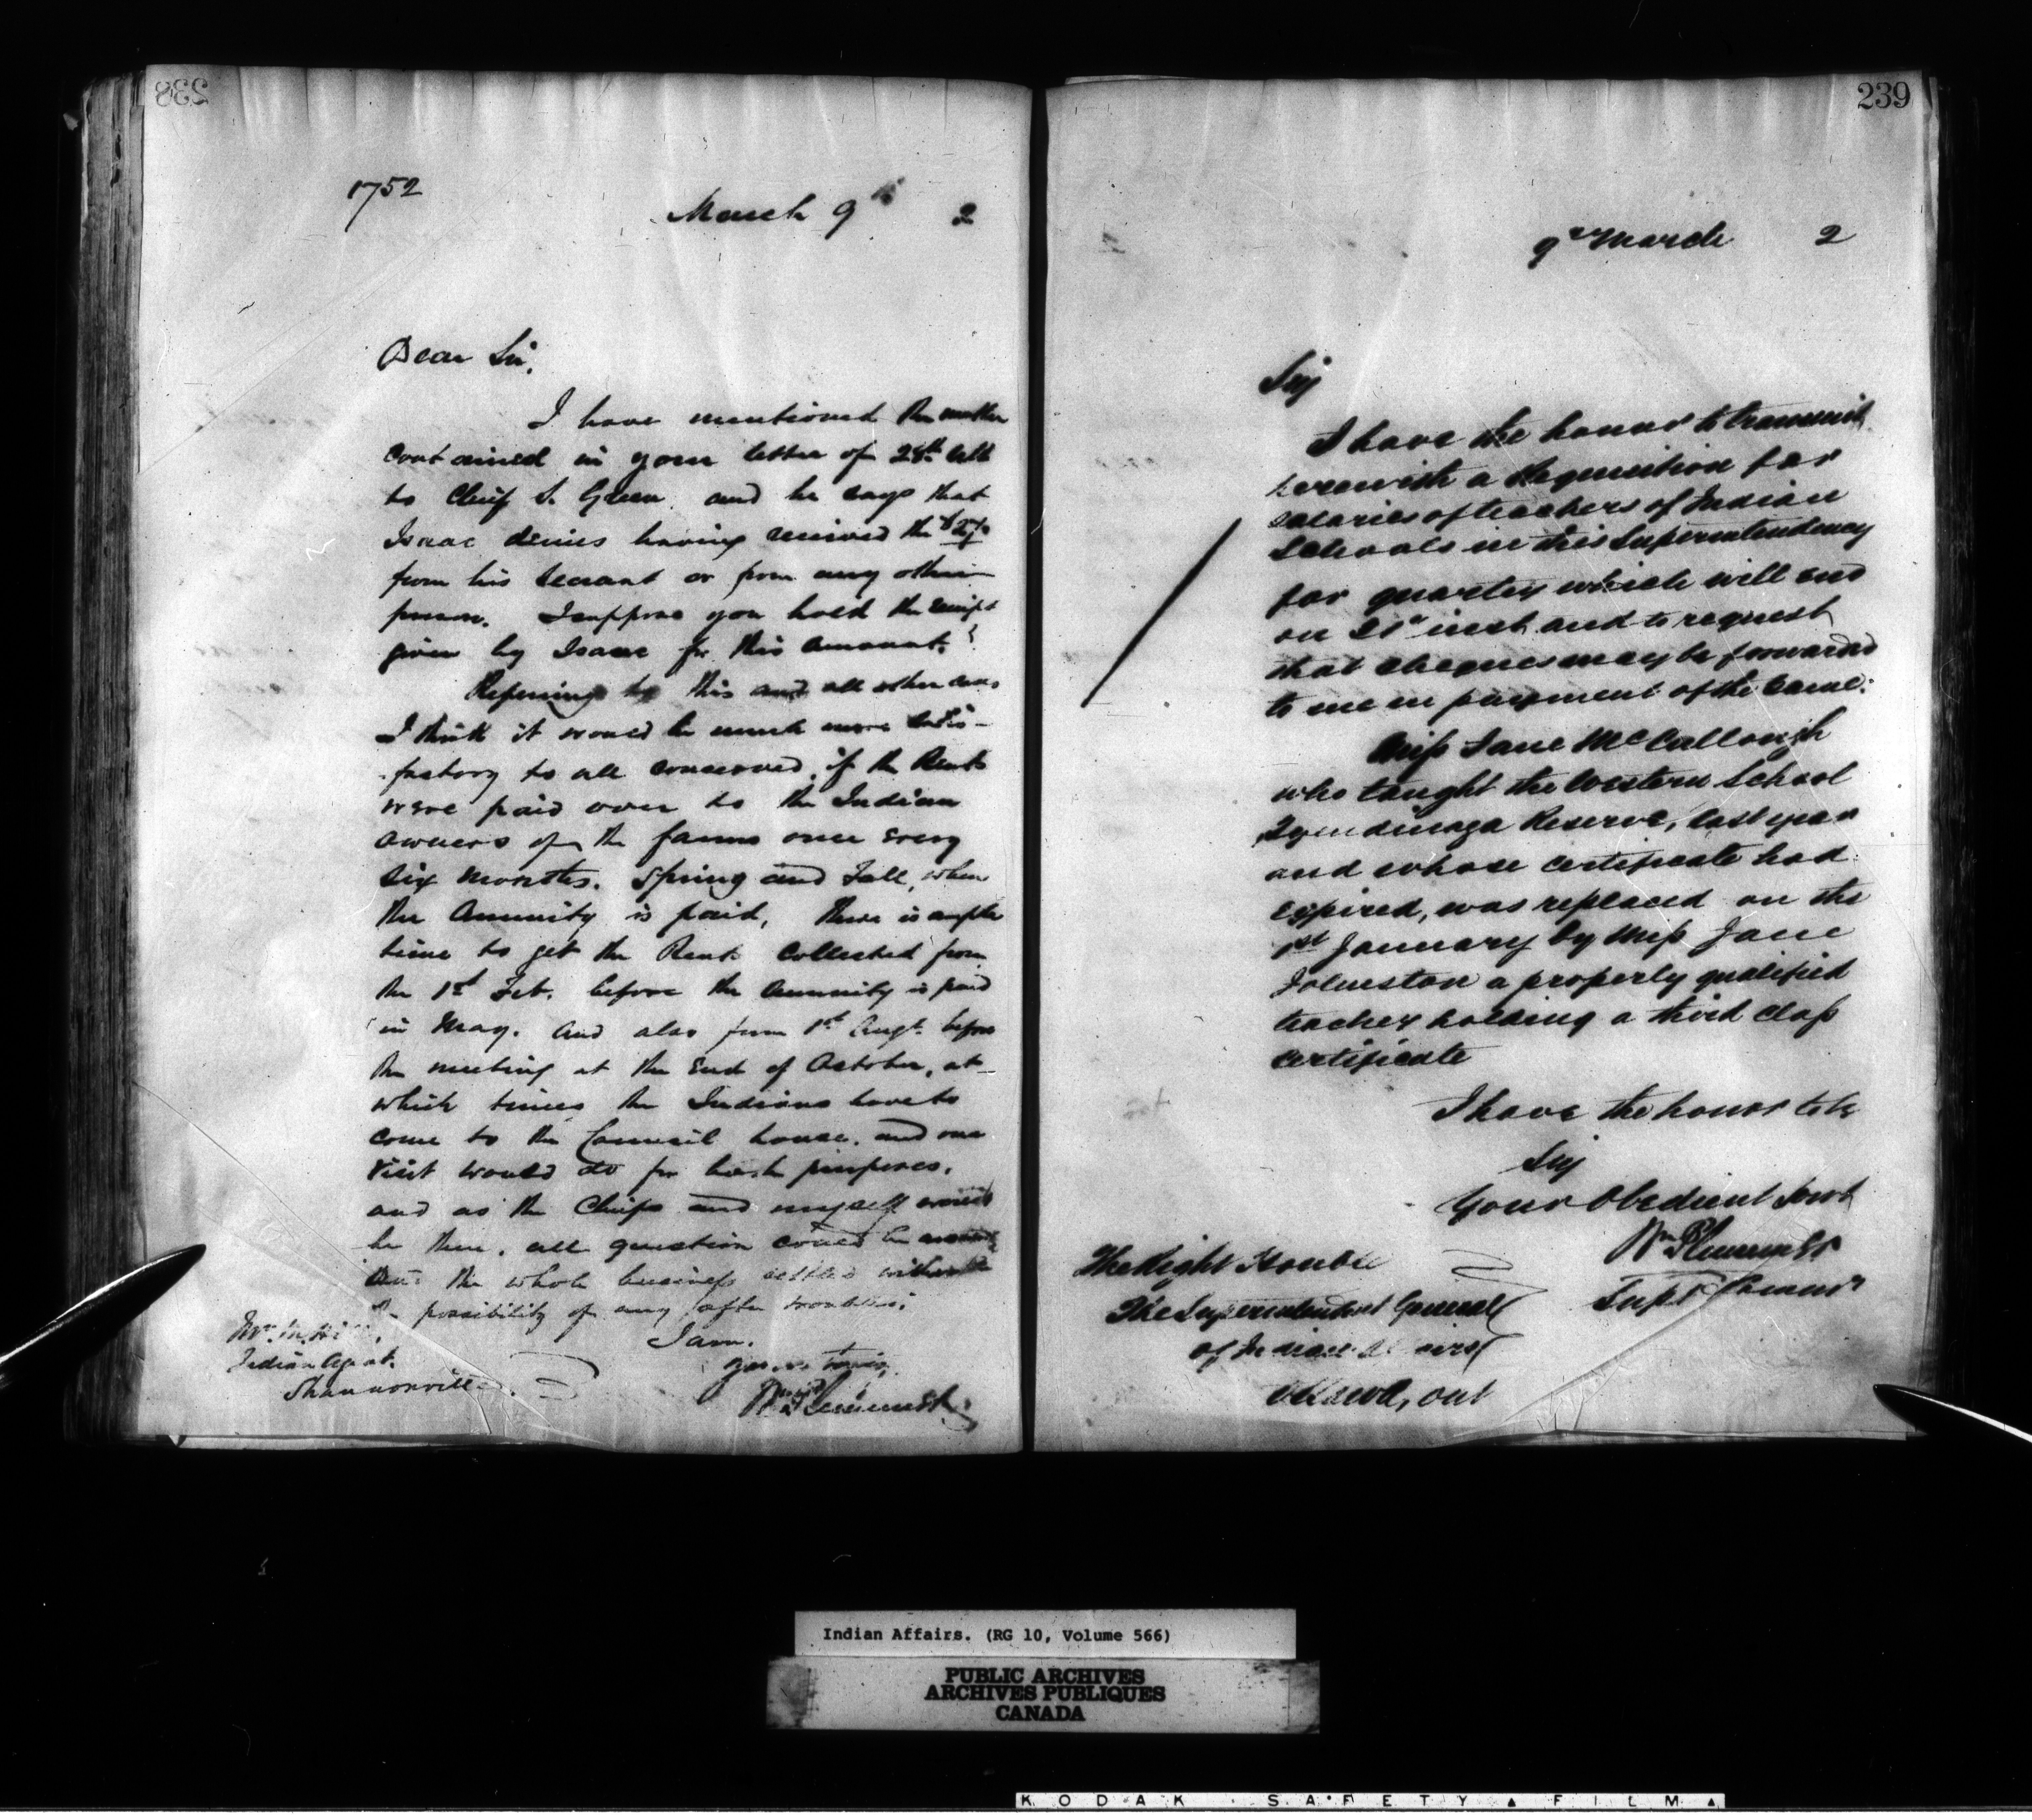 238
1752
March 9th 2
Dear Sir,
I have mentioned the matter
contained in your letter of 28th ult
to Chief S. Green and he says that
Isaac denies having received the
from his tenant or from any other
person. I suppose you hold the receipt
given by Isaac for this amount?
Referring to this and all other cases
I think it would be much more satis-
factory to all concerned, if the Rents
were paid over to the Indian
owners of the farms once every
six months. Spring and Fall, when
the Annuity is paid, there is ample
time to get the Rent collected from
the 1st Feb. before the Annuity is paid
in May. And also from 1st Augt. before
the meeting at the End of October, at
which times the Indians have to
come to the Council house, and one
visit would do for both purposes,
and as the Chiefs and myself would
be there, all question could be
and the whole business settled without
the possibility of any after troubles.
I am.
yours truly,
Wm Plummer
Mr. M. Hill,
Indian Agent.
Shannonville
239
9th March 2
Sir
I have the honor to transmit
herewith a Requisition for
salaries of teachers of Indian
Schools in this Superintendency
for quarter which will end
on 31st inst and to request
that cheques may be forwarded
to me in payment of the same.
Miss Jane McCullough
who taught the Western School
Tyendinaga Reserve, last year
and whose certificate had
expired, was replaced on the
1st January by Miss Jane
Johnston a properly qualified
teacher holding a third class
certificate
I have the honor to be
Sir
Your Obedient Servt
Wm Plummer
Supt Commr
The Right Honble
The Superintendent General
of Indian Affairs
Ottawa, Ont
Indian Affairs. (RG 10, Volume 566)
PUBLIC ARCHIVES
ARCHIVES PUBLIQUES
CANADA
KODAK SAFETY FILM